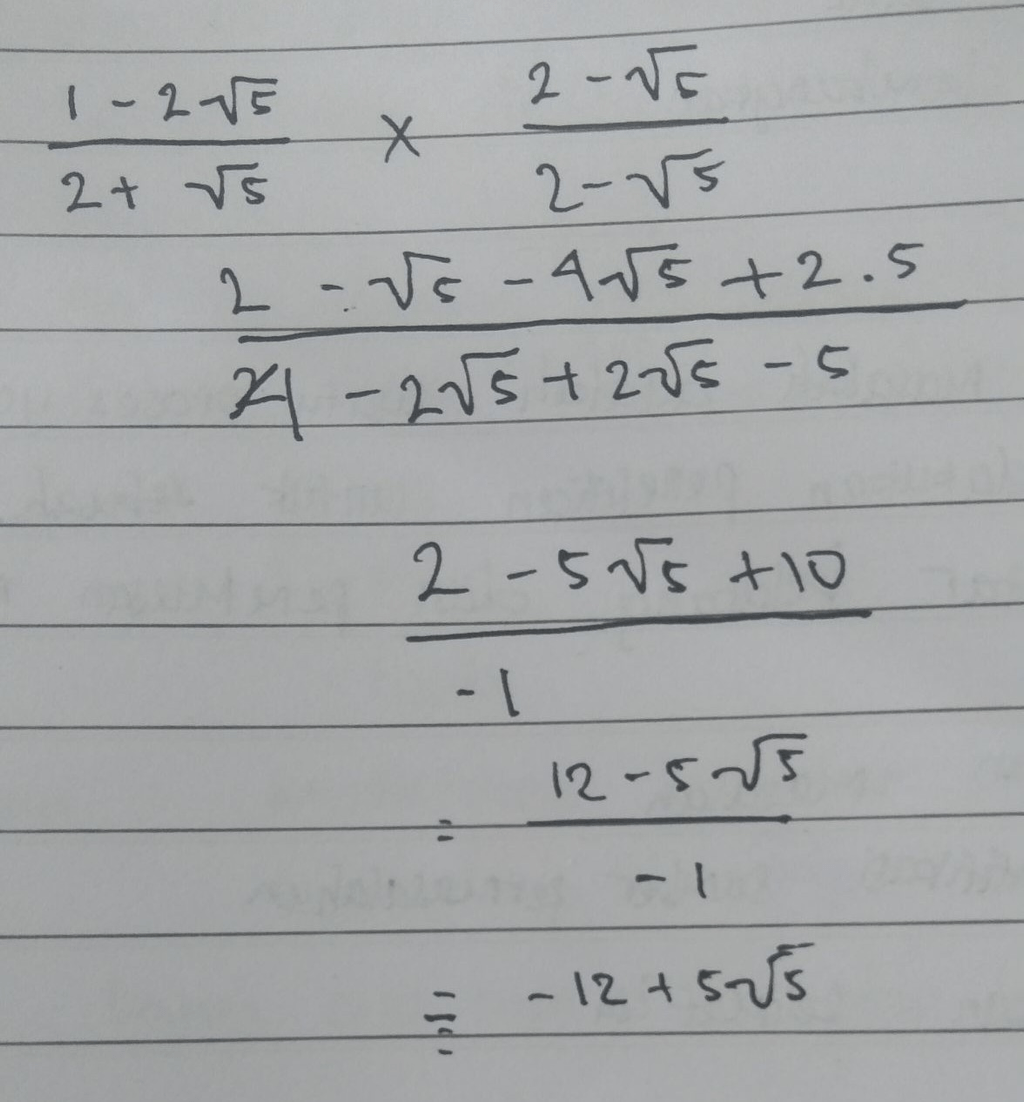 1 - 2√5 / 2 + √5 × 2 - √5 / 2 - √5
2 - √5 - 4√5 + 2 . 5
4 - 2√5 + 2√5 - 5
2 - 5√5 + 10
-1
= 12 - 5√5
-1
= -12 + 5√5